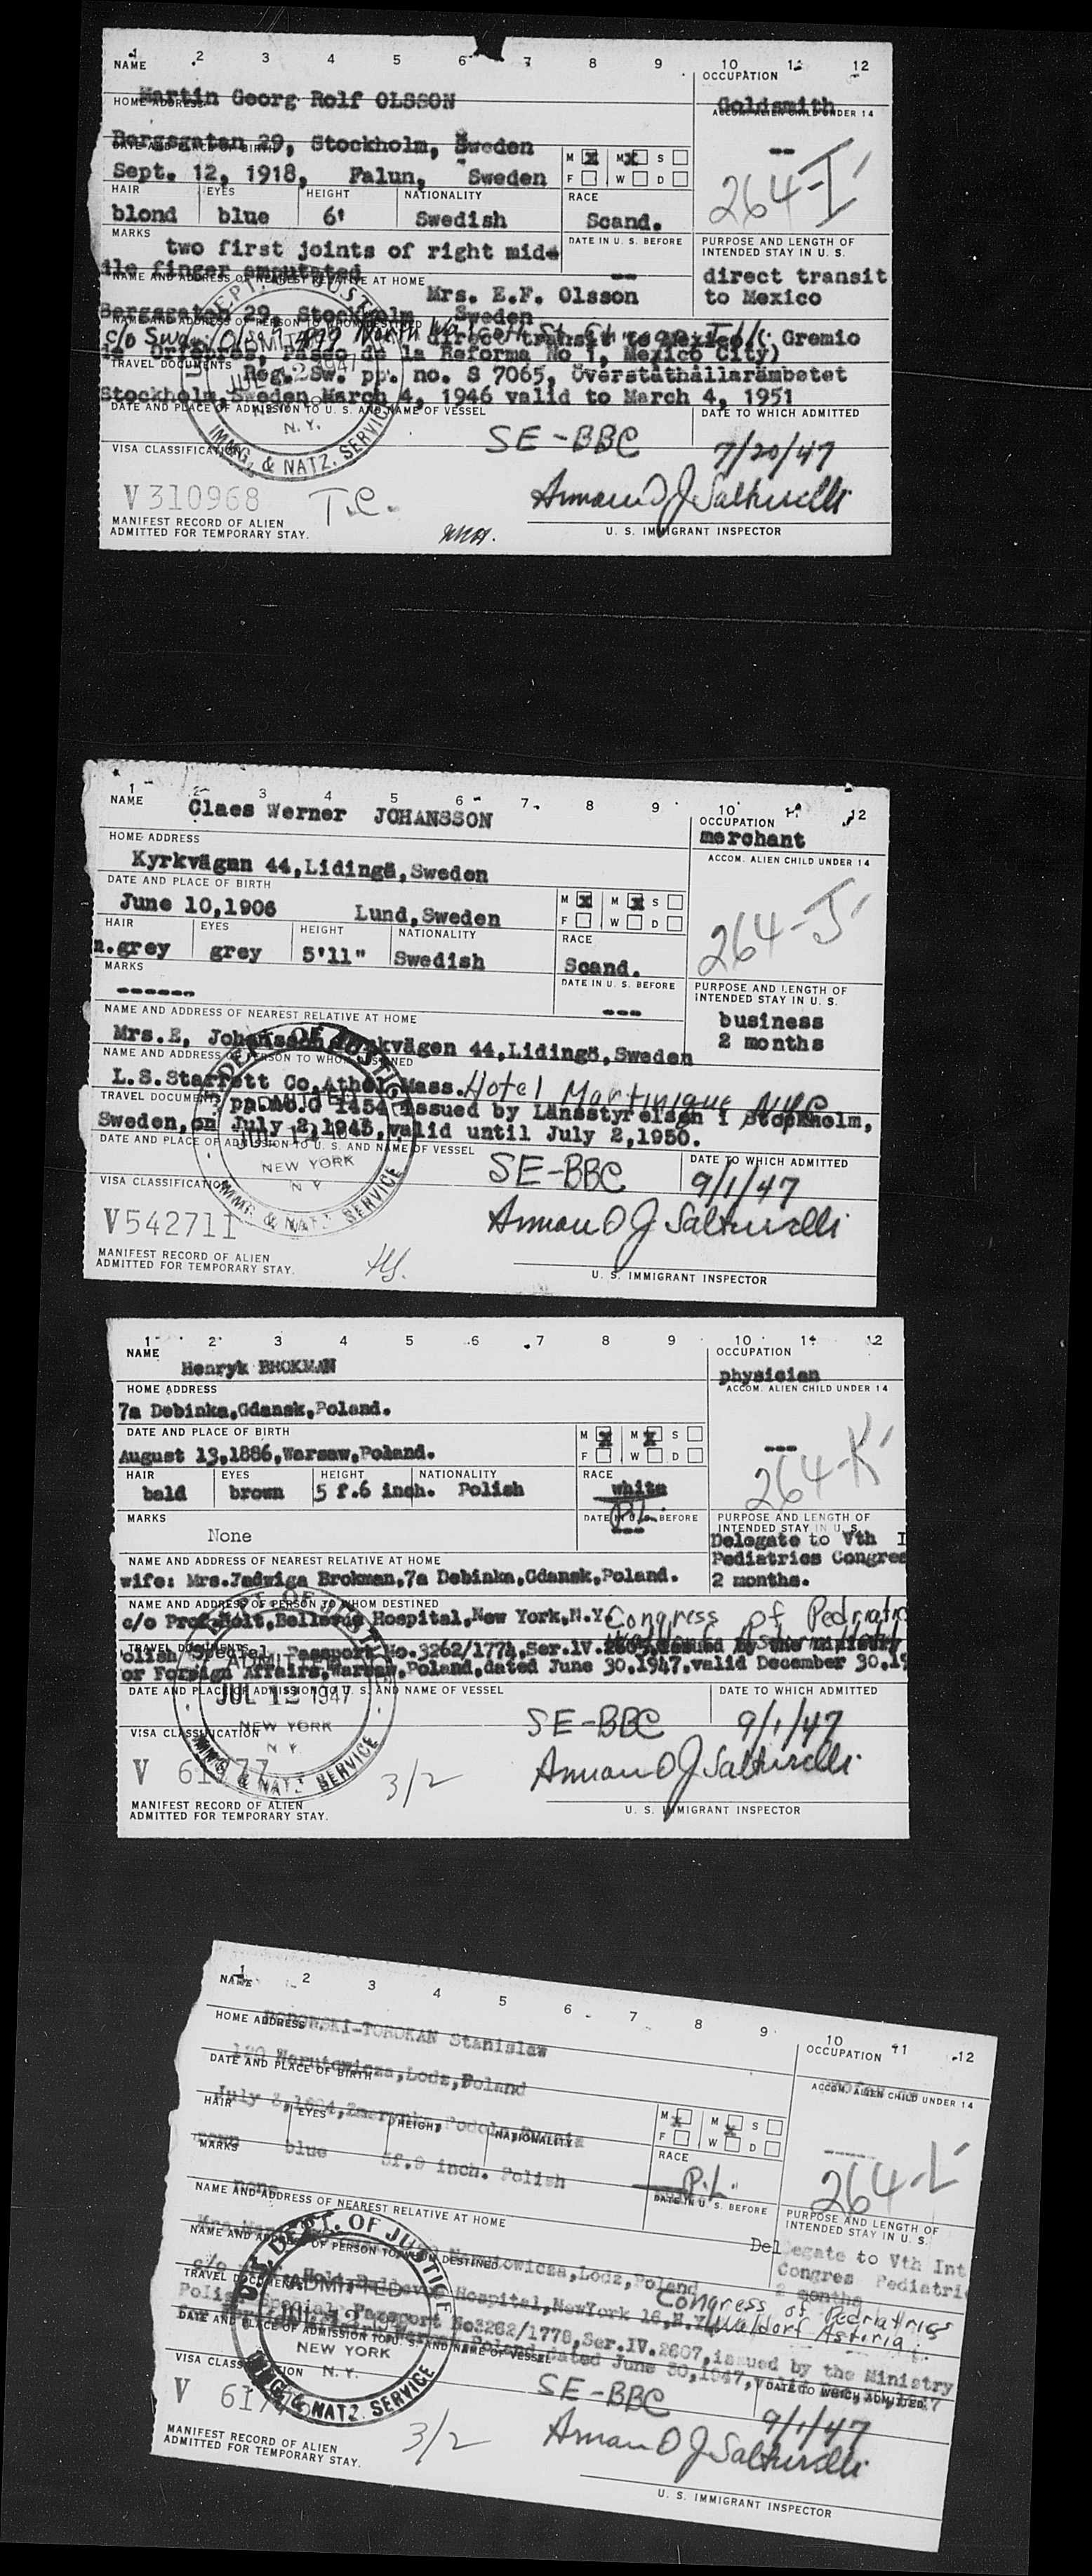 1 2 3 4 5 6 7 8 9 10 11 12
NAME
OCCUPATION
Martin Georg Rolf OLSSON
Goldsmith
HOME ADDRESS
ACCOM. ALIEN CHILD UNDER 14
Bergsgatan 29, Stockholm, Sweden
--
DATE AND PLACE OF BIRTH
M X M X S
Sept. 12, 1918, Falun, Sweden
F W D
264-I
HAIR EYES HEIGHT NATIONALITY RACE
blond blue 6' Swedish Scand.
MARKS
DATE IN U. S. BEFORE
PURPOSE AND LENGTH OF INTENDED STAY IN U. S.
two first joints of right mid-
dle finger amputated
--
direct transit
to Mexico
NAME AND ADDRESS OF NEAREST RELATIVE AT HOME
Mrs. E.F. Olsson
Bergsgatan 29, Stockholm Sweden
NAME AND ADDRESS OF PERSON TO WHOM DESTINED
direct transit to Mexico (: Gremio
de Orfebres, Paseo de la Reforma No 1, Mexico City)
TRAVEL DOCUMENTS
Reg. Sw. pp. no. S 7065, Överståthållarämbetet
Stockholm, Sweden March 4, 1946 valid to March 4, 1951
DATE AND PLACE OF ADMISSION TO U. S. AND NAME OF VESSEL
DATE TO WHICH ADMITTED
SE-BBC
7/20/47
ADMITTED
JUL 12 1947
N. Y.
IMMG. & NATZ. SERVICE
VISA CLASSIFICATION
V310968
T.C.
MANIFEST RECORD OF ALIEN
ADMITTED FOR TEMPORARY STAY.
U. S. IMMIGRANT INSPECTOR
1 2 3 4 5 6 7 8 9 10 11 12
NAME
Claes Werner JOHANSSON
OCCUPATION
merchant
HOME ADDRESS
ACCOM. ALIEN CHILD UNDER 14
Kyrkvägen 44, Lidingö, Sweden
DATE AND PLACE OF BIRTH
M X M X S
June 10, 1906 Lund, Sweden
F W D
264-J
HAIR EYES HEIGHT NATIONALITY RACE
n.grey grey 5'11" Swedish Scand.
MARKS
DATE IN U. S. BEFORE
PURPOSE AND LENGTH OF INTENDED STAY IN U. S.
------
---
business
2 months
NAME AND ADDRESS OF NEAREST RELATIVE AT HOME
Mrs. E, Johansson, Kyrkvägen 44, Lidingö, Sweden
NAME AND ADDRESS OF PERSON TO WHOM DESTINED
L.S. Starrett Co, Athol, Mass. Hotel Martinique NYC
TRAVEL DOCUMENTS
issued by Länsstyrelsen i Stockholm,
Sweden, on July 2, 1945, valid until July 2, 1950.
DATE AND PLACE OF ADMISSION TO U. S. AND NAME OF VESSEL
DATE TO WHICH ADMITTED
SE-BBC
9/1/47
NEW YORK
N Y
IMMG. & NATZ. SERVICE
VISA CLASSIFICATION
V542711
MANIFEST RECORD OF ALIEN
ADMITTED FOR TEMPORARY STAY.
U. S. IMMIGRANT INSPECTOR
1 2 3 4 5 6 7 8 9 10 11 12
NAME
Henryk BROKMAN
OCCUPATION
physician
HOME ADDRESS
ACCOM. ALIEN CHILD UNDER 14
7a Debinka, Gdansk, Poland.
DATE AND PLACE OF BIRTH
M X M X S
August 13, 1886, Warsaw, Poland.
F W D
---
264-K
HAIR EYES HEIGHT NATIONALITY RACE
bald brown 5 f.6 inch. Polish white
MARKS
DATE IN U. S. BEFORE
PURPOSE AND LENGTH OF INTENDED STAY IN U. S.
None
---
Delegate to Vth I
Pediatrics Congres
2 months.
NAME AND ADDRESS OF NEAREST RELATIVE AT HOME
wife: Mrs. Jadwiga Brokman, 7a Debinka, Gdansk, Poland.
NAME AND ADDRESS OF PERSON TO WHOM DESTINED
c/o Prof. Holt, Bellevue Hospital, New York, N.Y. Congress of Pediatric
TRAVEL DOCUMENTS
olish/Special Passport No. 3262/1774, Ser.IV. issued by the ministry
or Foreign Affairs, Warsaw, Poland, dated June 30, 1947, valid December 30, 19
DATE AND PLACE OF ADMISSION TO U. S. AND NAME OF VESSEL
DATE TO WHICH ADMITTED
ADMITTED
JUL 12 1947
SE-BBC
9/1/47
NEW YORK
N Y
IMMG. & NATZ. SERVICE
VISA CLASSIFICATION
3/2
MANIFEST RECORD OF ALIEN
ADMITTED FOR TEMPORARY STAY.
U. S. IMMIGRANT INSPECTOR
1 2 3 4 5 6 7 8 9 10 11 12
NAME
OCCUPATION
Stanislaw
HOME ADDRESS
ACCOM. ALIEN CHILD UNDER 14
Lodz, Poland
DATE AND PLACE OF BIRTH
M X M X S
F W D
264-L
HAIR EYES HEIGHT NATIONALITY RACE
blue 5f.9 inch. Polish
MARKS
DATE IN U. S. BEFORE
PURPOSE AND LENGTH OF INTENDED STAY IN U. S.
none
Delegate to Vth Int
Congres Pediatri
2 months
NAME AND ADDRESS OF NEAREST RELATIVE AT HOME
Lodz, Poland
NAME AND ADDRESS OF PERSON TO WHOM DESTINED
Hospital, NewYork 16, N.Y. Congress of Pedriatrics
Waldorf Astoria
TRAVEL DOCUMENTS
Polish Special Passport No3262/1778, Ser.IV.2607, issued by the Ministry
Poland dated June 30, 1947,
DATE AND PLACE OF ADMISSION TO U. S. AND NAME OF VESSEL
DATE TO WHICH ADMITTED
DEPT. OF JUSTICE
ADMITTED
SE-BBC
9/1/47
NEW YORK
N. Y.
IMMG. & NATZ. SERVICE
VISA CLASSIFICATION
3/2
MANIFEST RECORD OF ALIEN
ADMITTED FOR TEMPORARY STAY.
U. S. IMMIGRANT INSPECTOR